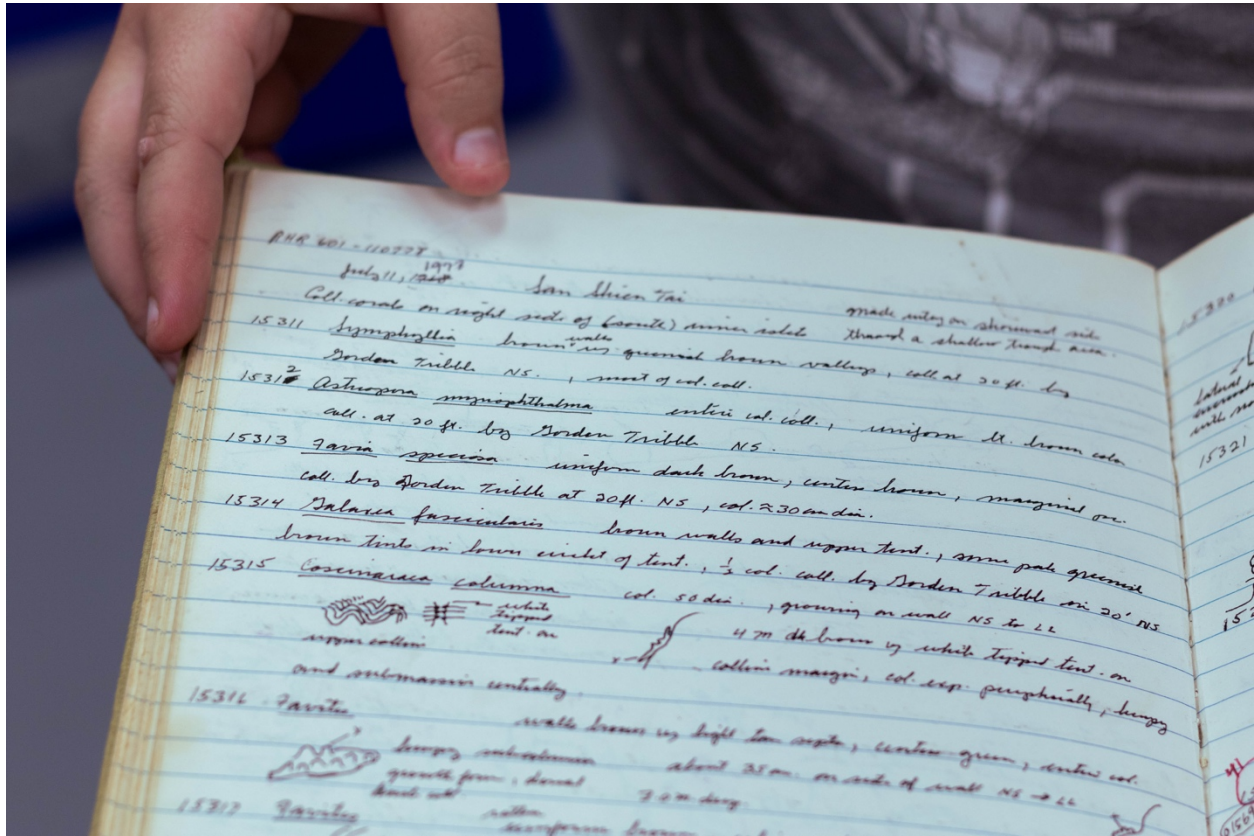 RHR 601 - 110778
July 11, 1978 San Shien Tai
Coll. corals on right side of (south) inner islet made entry on shoreward side
through a shallow trough area.
15311 Symphyllia brown walls w greenish brown valleys, coll at 20 ft. by
Gordon Tribble NS. , most of col. coll.
15312 Astreopora myriophthalma entire col. coll., uniform lt. brown color
coll. at 20 ft. by Gordon Tribble NS.
15313 Favia speciosa uniform dark brown, center brown, marginal
coll. by Gordon Tribble at 20 ft. NS, col. ≈ 30 cm dia.
15314 Galaxea fascicularis brown walls and upper tent., some pale greenish
brown tints in lower circlet of tent., ½ col. coll. by Gordon Tribble in 20' NS
15315 Coscinaraea columna col. 50 dia., growing on wall NS to LL
white
tipped
tent. on
upper collin
4 m dk brown w white tipped tent. on
collin margin, col. exp. peripherally, lumpy
and submassiv centrally.
15316 Favites walls brown w light tan septa, centers green, entire col.
lumpy
growth form, about 35 cm. on side of wall NS → LL
7.0 m deep.
15317 Favites
brown
15320
lateral
15321